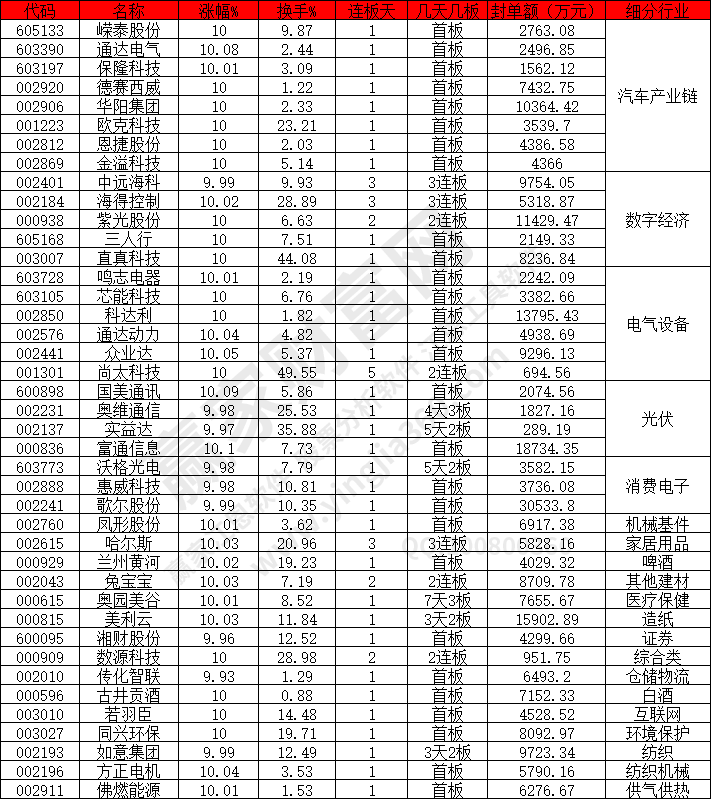 代码 名称 涨幅% 换手% 连板天 几天几板 封单额（万元） 细分行业
605133 嵘泰股份 10 9.87 1 首板 2763.08
603390 通达电气 10.08 2.44 1 首板 2496.85
603197 保隆科技 10.01 3.09 1 首板 1562.12
002920 德赛西威 10 1.22 1 首板 7432.75
002906 华阳集团 10 2.33 1 首板 10364.42 汽车产业链
001223 欧克科技 10 23.21 1 首板 3539.7
002812 恩捷股份 10 2.03 1 首板 4386.58
002869 金溢科技 10 5.14 1 首板 4366
002401 中远海科 9.99 9.93 3 3连板 9754.05
002184 海得控制 10.02 28.89 3 3连板 5318.87
000938 紫光股份 10 6.63 2 2连板 11429.47 数字经济
605168 三人行 10 7.51 1 首板 2149.33
003007 直真科技 10 44.08 1 首板 8236.84
603728 鸣志电器 10.01 2.19 1 首板 2242.09
603105 芯能科技 10 6.76 1 首板 3382.66
002850 科达利 10 1.82 1 首板 13795.43 电气设备
002576 通达动力 10.04 4.82 1 首板 4938.69
002441 众业达 10.05 5.37 1 首板 9296.13
001301 尚太科技 10 49.55 5 2连板 694.56
600898 国美通讯 10.09 5.86 1 首板 2074.56
002231 奥维通信 9.98 25.53 1 4天3板 1827.16 光伏
002137 实益达 9.97 35.88 1 5天2板 289.19
000836 富通信息 10.1 7.73 1 首板 18734.35
603773 沃格光电 9.98 7.79 1 5天2板 3582.15
002888 惠威科技 9.98 10.81 1 首板 3736.08 消费电子
002241 歌尔股份 9.99 10.35 1 首板 30533.8
002760 凤形股份 10.01 3.62 1 首板 6917.38 机械基件
002615 哈尔斯 10.03 20.96 3 3连板 5828.16 家居用品
000929 兰州黄河 10.02 19.23 1 首板 4029.32 啤酒
002043 兔宝宝 10.03 7.19 2 2连板 8709.78 其他建材
000615 奥园美谷 10.01 8.52 1 7天3板 7655.67 医疗保健
000815 美利云 10.03 11.84 1 3天2板 15902.89 造纸
600095 湘财股份 9.96 12.52 1 首板 4299.66 证券
000909 数源科技 10 28.98 2 2连板 951.75 综合类
002010 传化智联 9.93 1.29 1 首板 6493.2 仓储物流
000596 古井贡酒 10 0.88 1 首板 7152.33 白酒
003010 若羽臣 10 14.48 1 首板 4528.52 互联网
003027 同兴环保 10 19.71 1 首板 8092.97 环境保护
002193 如意集团 9.99 12.49 1 3天2板 9723.34 纺织
002196 方正电机 10.04 3.53 1 首板 5790.16 纺织机械
002911 佛燃能源 10.01 1.53 1 首板 6276.67 供气供热
赢家财富网